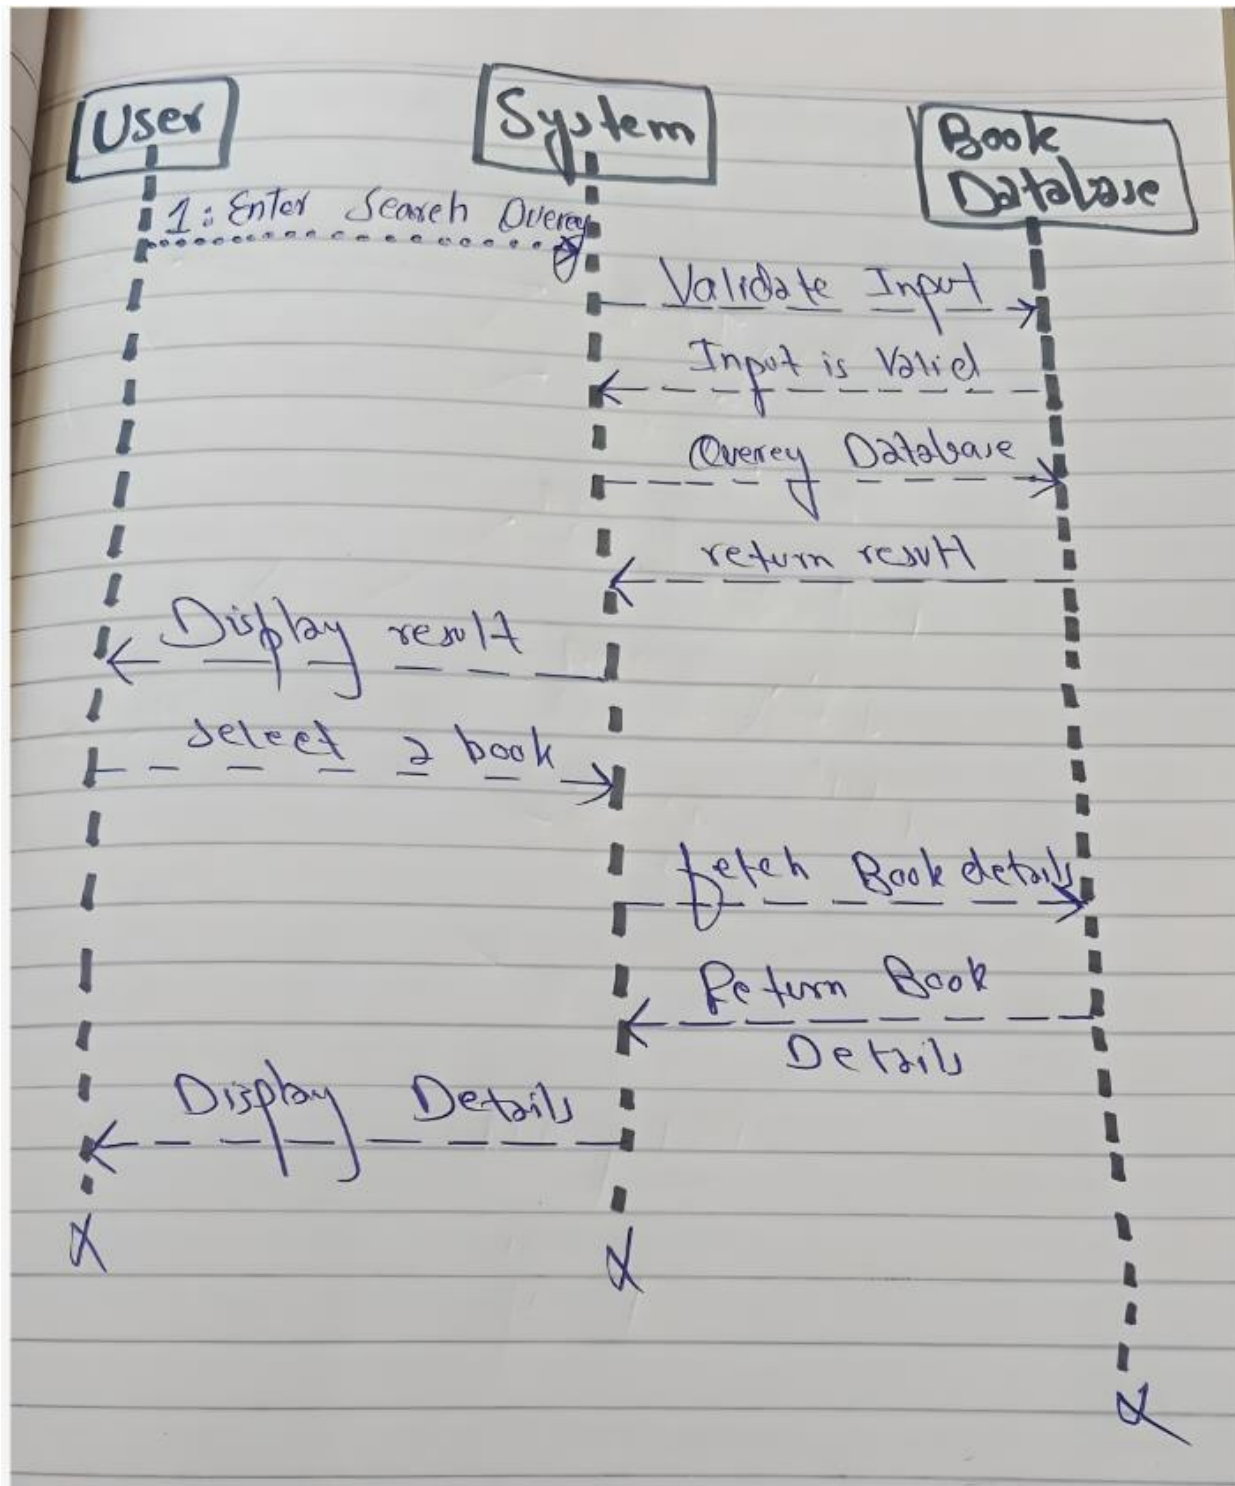 User
System
Book
Database
1: Enter Search Querey
Validate Input
Input is Valid
Querey Database
return result
Display result
select a book
fetch Book details
Return Book
Details
Display Details